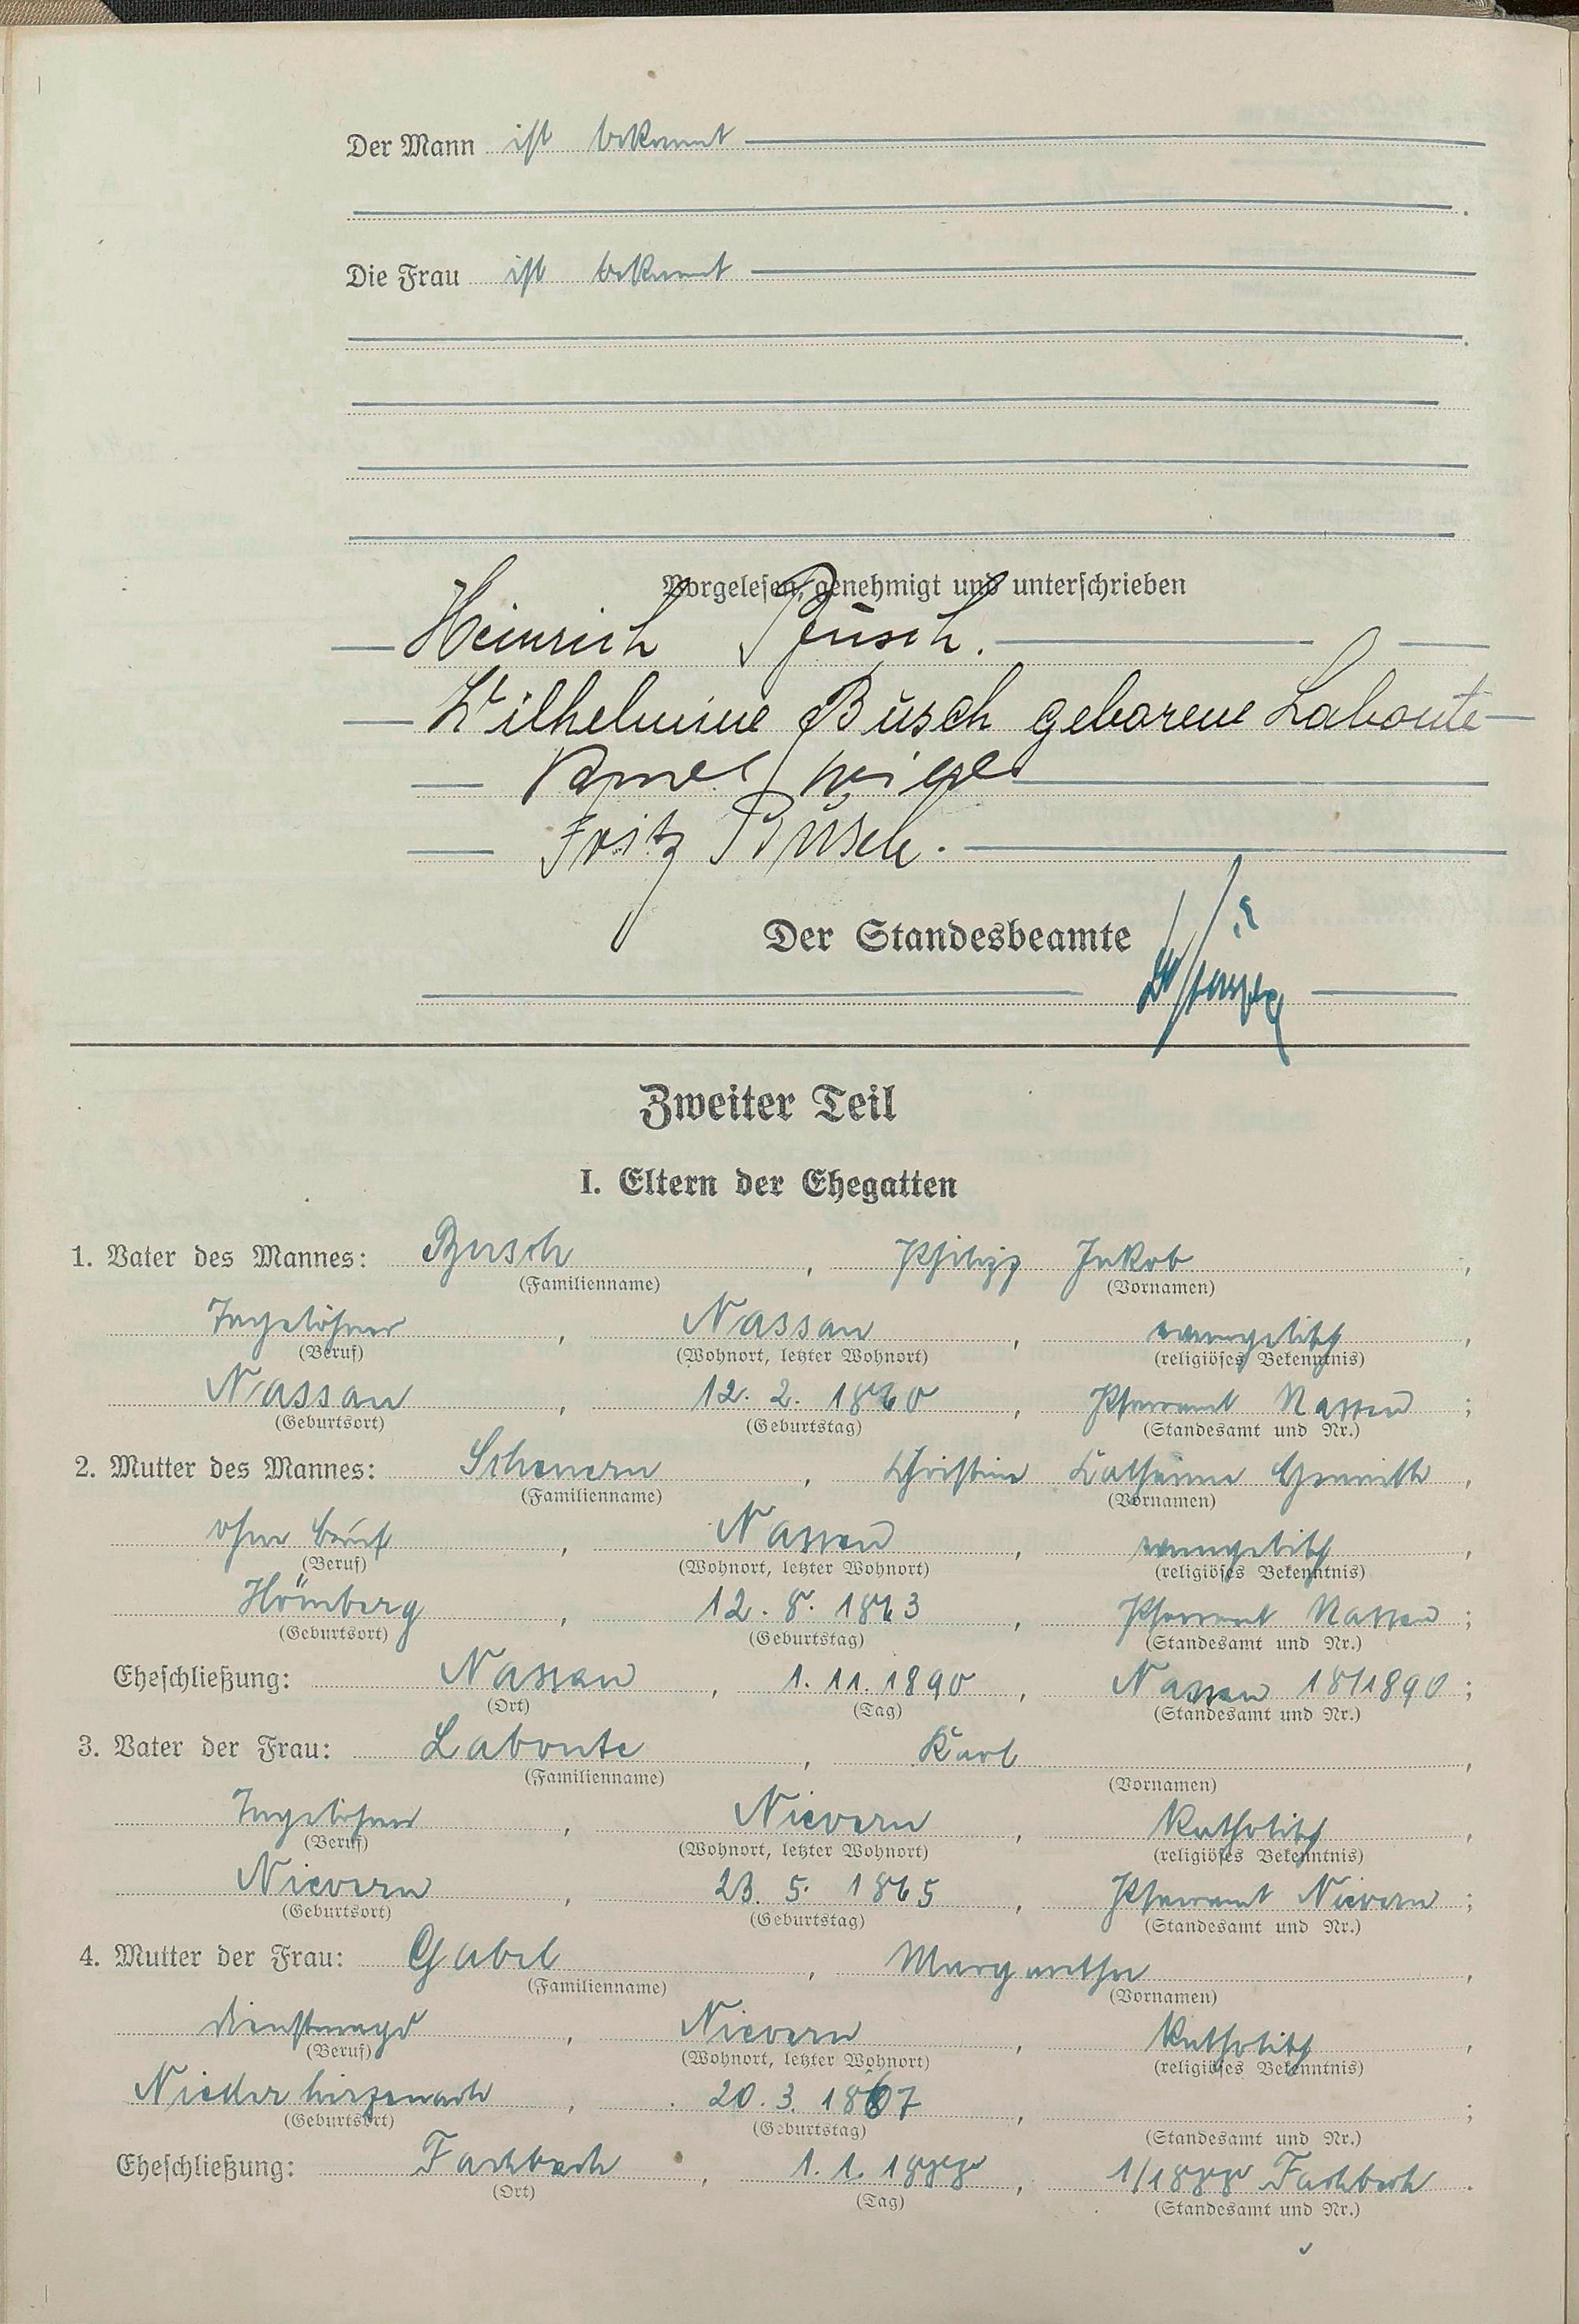 Der Mann ist bekannt
Die Frau ist bekannt
Vorgelesen, genehmigt und unterschrieben
Heinrich Busch.
Wilhelmine Busch geborene Labonte
Fritz Busch.
Der Standesbeamte
Zweiter Teil
I. Eltern der Ehegatten
1. Vater des Mannes: Busch, Philipp Jakob,
(Familienname) (Vornamen)
Tagelöhner, Nassau, evangelisch,
(Beruf) (Wohnort, letzter Wohnort) (religiöses Bekenntnis)
Nassau, 12. 2. 1860, Pfarramt Nassau;
(Geburtsort) (Geburtstag) (Standesamt und Nr.)
2. Mutter des Mannes: Scheuern, Christine Katharine,
(Familienname) (Vornamen)
ohne Beruf, Nassau, evangelisch,
(Beruf) (Wohnort, letzter Wohnort) (religiöses Bekenntnis)
Hömberg, 12. 8. 1863, Pfarramt Nassau;
(Geburtsort) (Geburtstag) (Standesamt und Nr.)
Eheschließung: Nassau, 1. 11. 1890, Nassau 18/1890;
(Ort) (Tag) (Standesamt und Nr.)
3. Vater der Frau: Labonte, Karl,
(Familienname) (Vornamen)
Tagelöhner, Nievern, katholisch,
(Beruf) (Wohnort, letzter Wohnort) (religiöses Bekenntnis)
Nievern, 23. 5. 1865, Pfarramt Nievern;
(Geburtsort) (Geburtstag) (Standesamt und Nr.)
4. Mutter der Frau: Gabel, Margarethe,
(Familienname) (Vornamen)
Dienstmagd, Nievern, katholisch,
(Beruf) (Wohnort, letzter Wohnort) (religiöses Bekenntnis)
Niederhirzenach, 20. 3. 1867, ;
(Geburtsort) (Geburtstag) (Standesamt und Nr.)
Eheschließung: Fachbach, 1. 1. , Fachbach.
(Ort) (Tag) (Standesamt und Nr.)